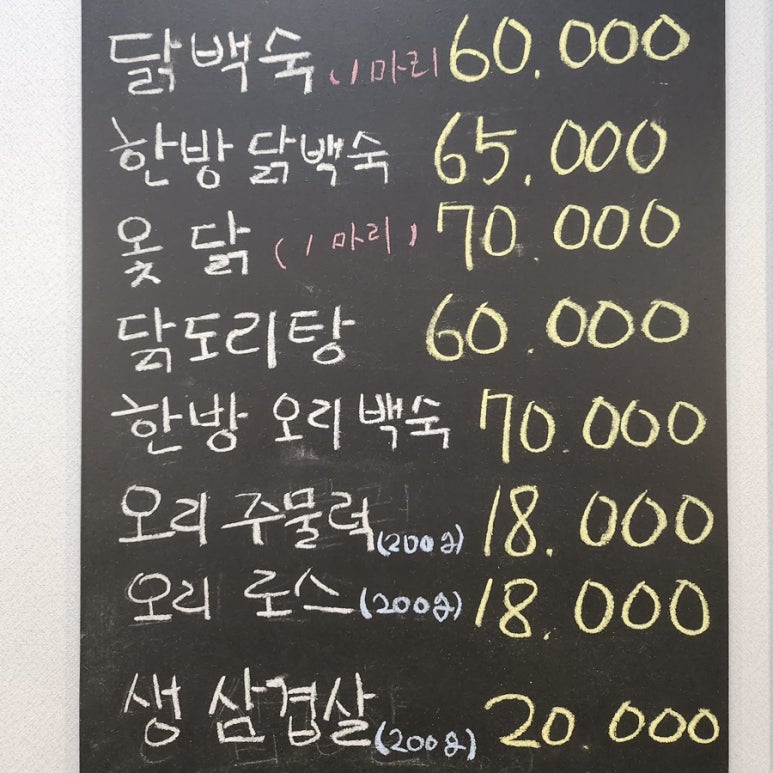 닭백숙 (1마리 60.000
한방 닭백숙 65.000
옻 닭 (1마리) 70.000
닭도리탕 60.000
한방 오리백숙 70 000
오리 주물럭(200g) 18.000
오리 로스(200g) 18.000
생 삼겹살(200g) 20 000